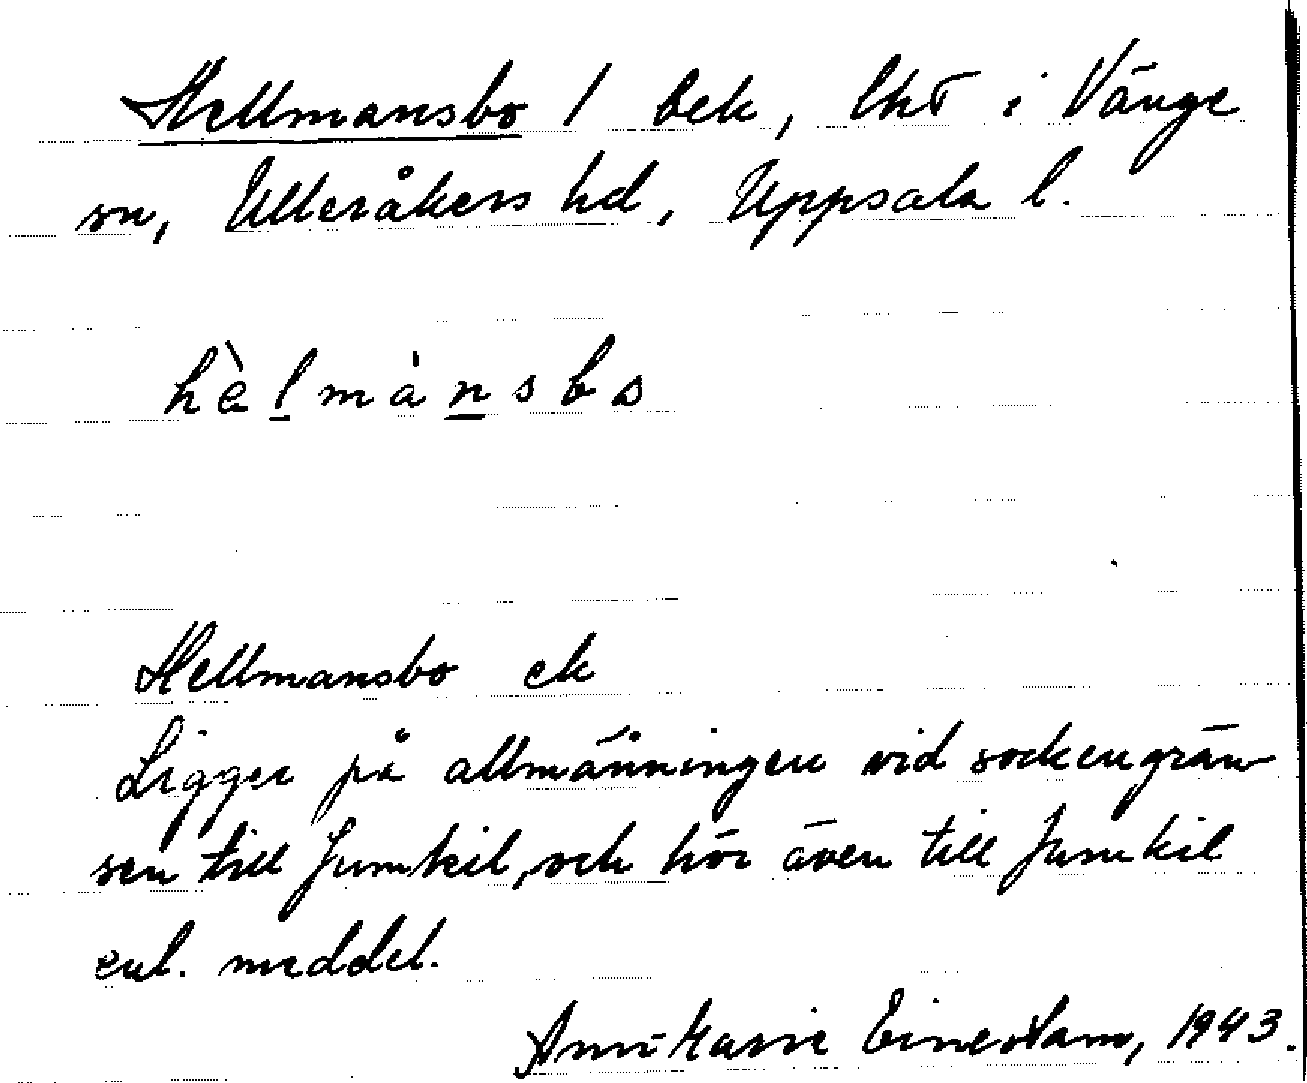 Hellmansbo / bek, lht i Vänge
sn, Ulleråkers hd, Uppsala l.
hèlmánsbo
Hellmansbo ek
Ligger på allmänningen vid sockengrän
sen till Jumkil, och hör även till Jumkil
enl. meddel.
Ann-Marie Einerstam, 1943.